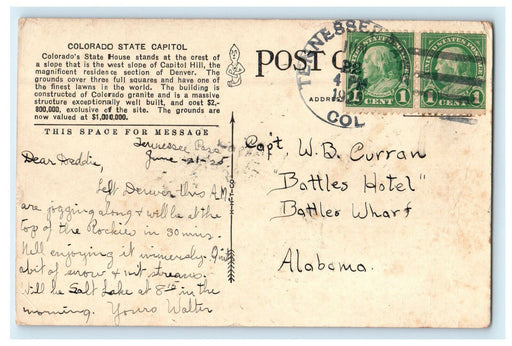 COLORADO STATE CAPITOL
Colorado's State House stands at the crest of
a slope that is the west slope of Capitol Hill, the
magnificent residence section of Denver. The
grounds cover three full squares and have one of
the finest lawns in the world. The building is
constructed of Colorado granite and is a massive
structure exceptionally well built, and cost $2,-
800,000, exclusive of the site. The grounds are
now valued at $1,000,000.
THIS SPACE FOR MESSAGE
Tennessee Pass
June -21-25
Dear Daddie,
Left Denver this A.M.
are jogging along & will be at the
top of the Rockies in 30 mins.
Nell enjoying it immensely. Quite
a bit of snow & streams.
Will be Salt Lake at 8 in the
morning. Yours Walter
POST C
ADDRE
TENNESSEE
COL
1 CENT 1
1 CENT 1
Capt. W. B. Curran
"Battles Hotel"
Battles Wharf
Alabama.